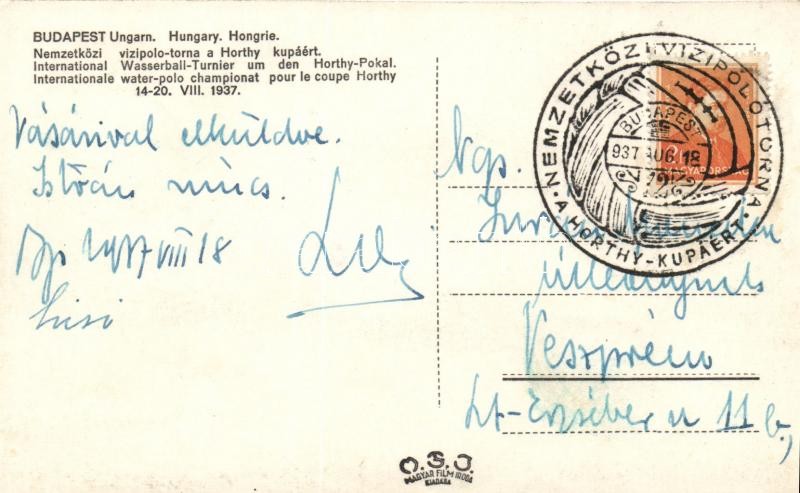 BUDAPEST Ungarn. Hungary. Hongrie.
Nemzetközi vizipolo-torna a Horthy kupáért.
International Wasserball-Turnier um den Horthy-Pokal.
Internationale water-polo championat pour le coupe Horthy
14-20. VIII. 1937.
Vásárival elküldve.
István nincs.
Bp 1937 VIII 18
NEMZETKÖZI VIZIPÓLÓTORNA
A HORTHY-KUPÁÉRT
BUDAPEST
937 AUG. 18
MAGYARORSZÁG
Ngs.
Veszprém
Szt-Erzsébet u 11 b,
O.S.J.
MAGYAR FILM IRODA
KIADÁSA